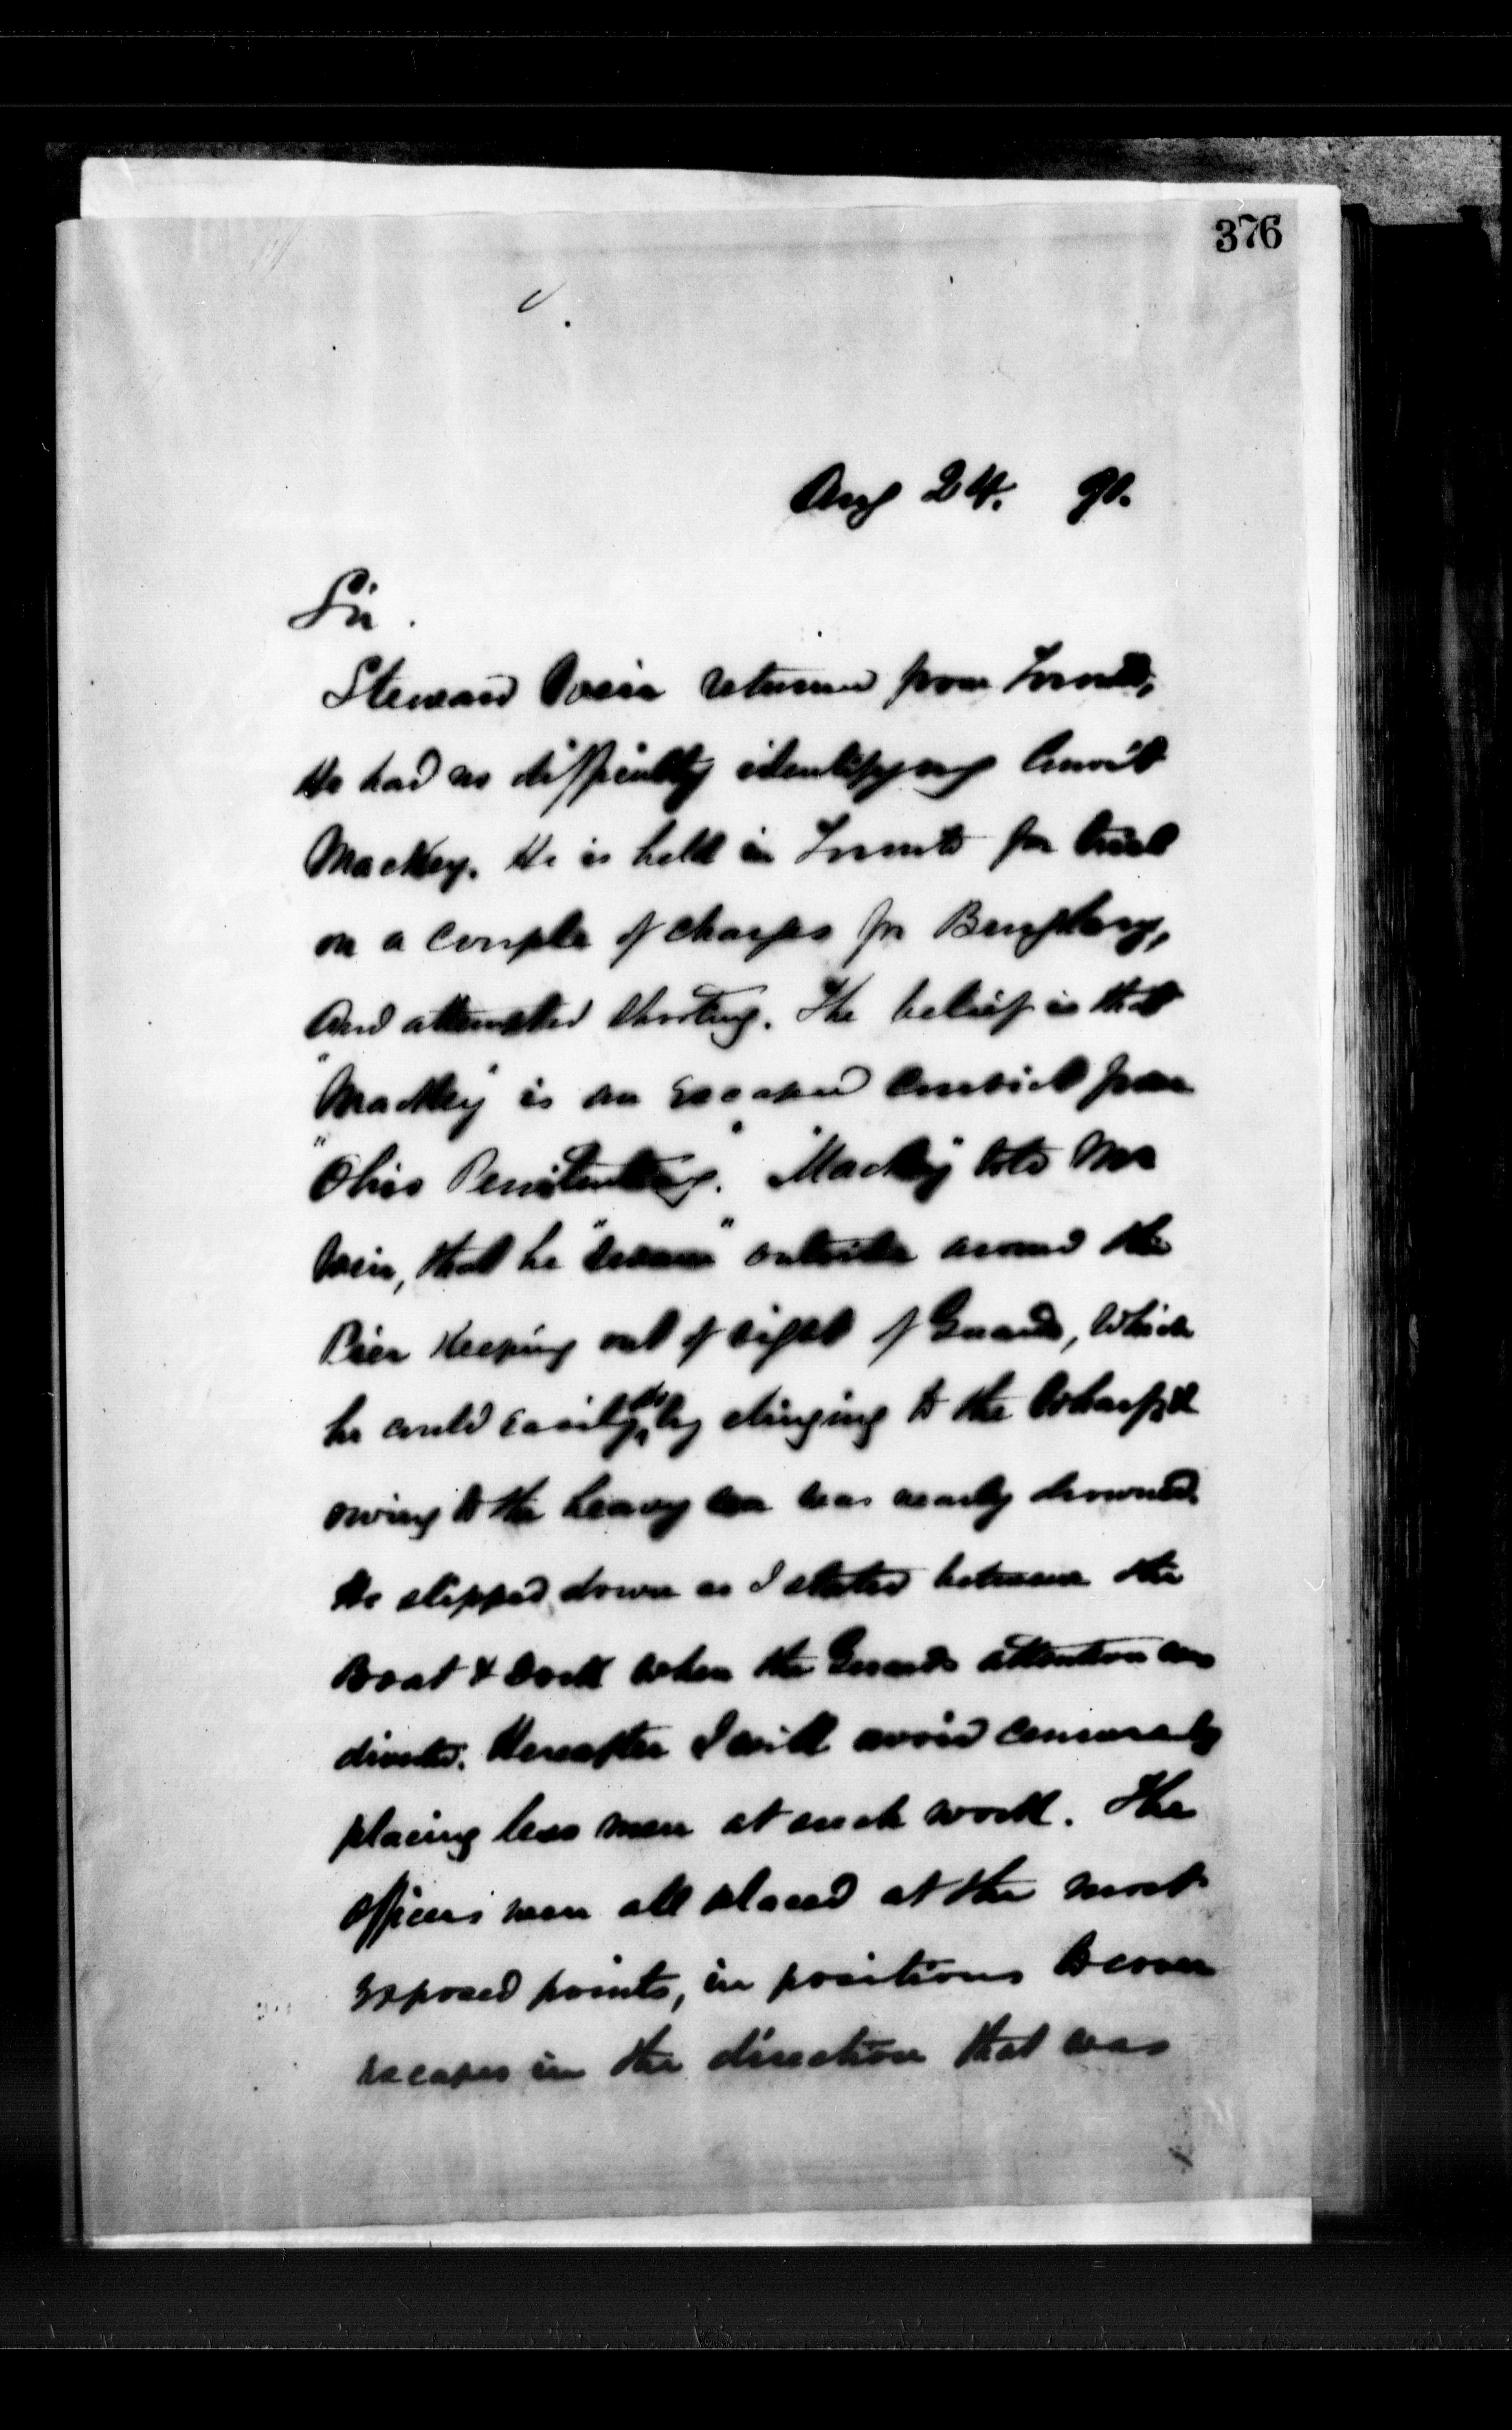 376
Aug 24. 91.
Sir.
Steward Weir returned from Toronto,
He had no difficulty identifying Convict
Mackey. He is held in Toronto for trial
on a couple of charges for Burglary,
And attempted Shooting. The belief is that
"Mackey" is an Escaped Convict from
"Ohio Penitentiary." "Mackey" told Mr
Weir, that he "swam" outside around the
Pier Keeping out of sight of Guards, Which
he could easily do by clinging to the Wharf, &
owing to the heavy sea was nearly drowned.
He slipped down as I stated between the
Boat & Dock when the Guards attention was
diverted. Hereafter I will avoid censure by
placing less men at such work. The
Officers were all placed at the most
Exposed points, in positions to cover
escapes in the direction that was